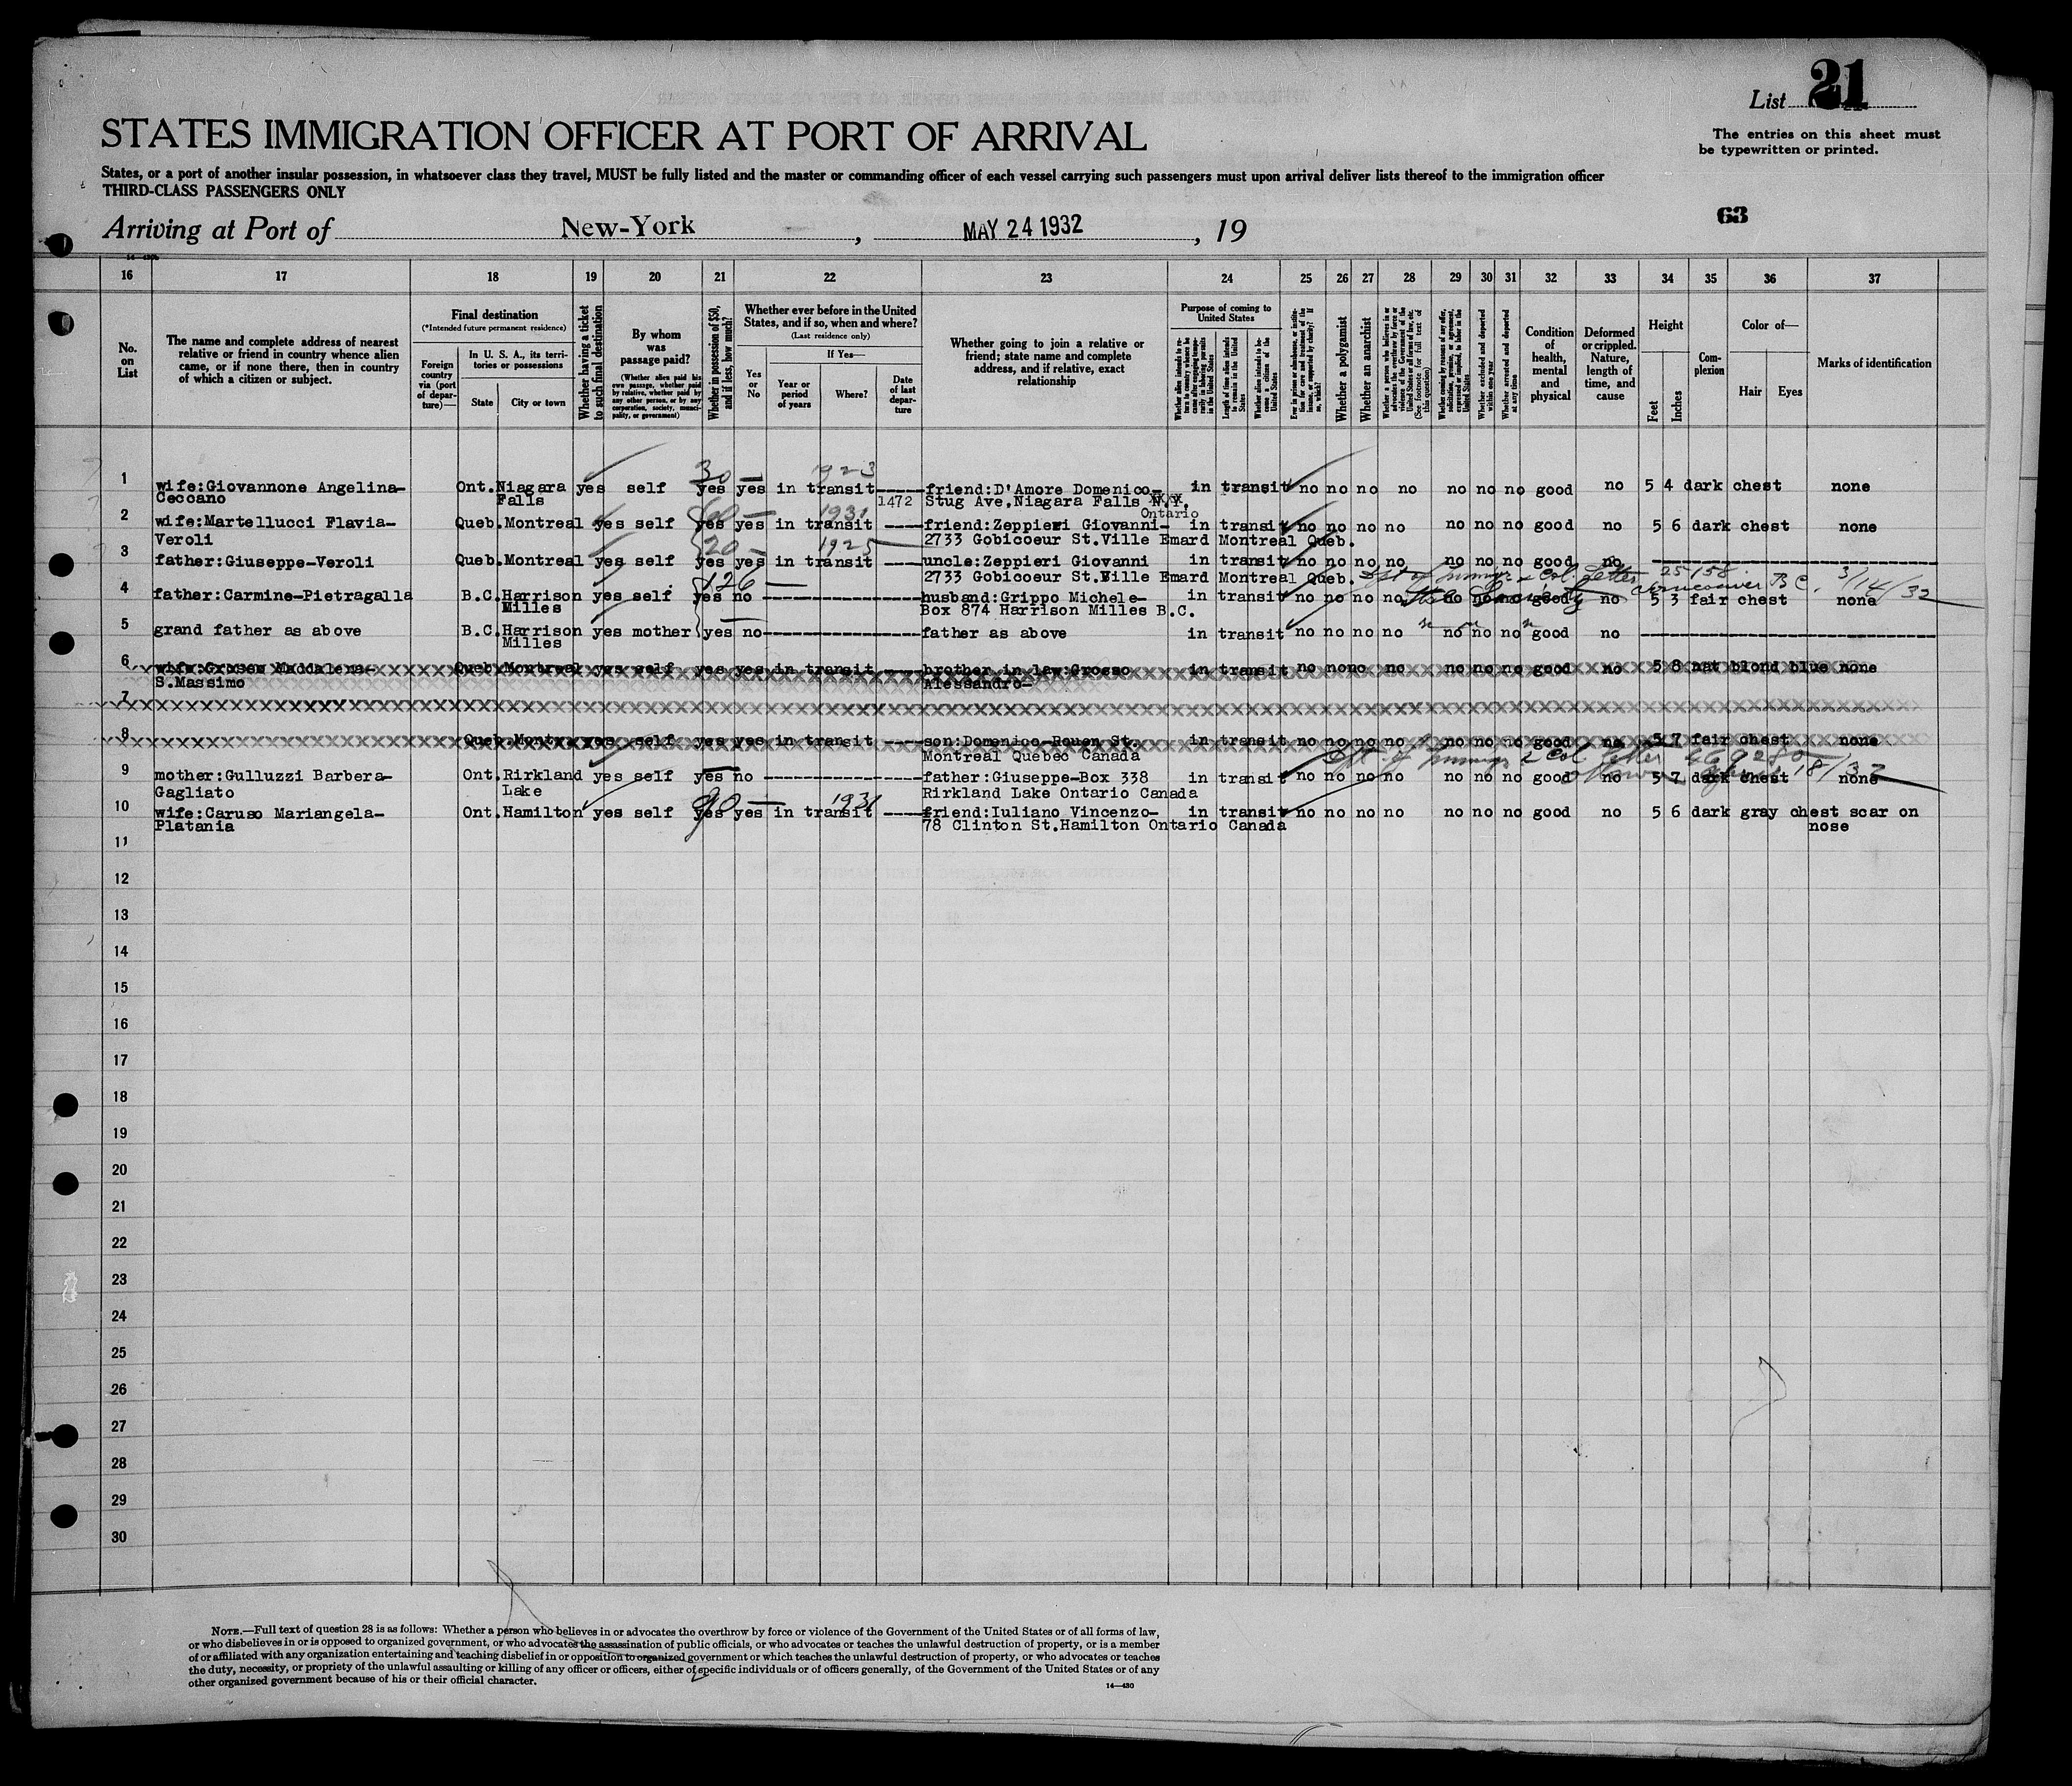 List 21
STATES IMMIGRATION OFFICER AT PORT OF ARRIVAL
The entries on this sheet must
be typewritten or printed.
States, or a port of another insular possession, in whatsoever class they travel, MUST be fully listed and the master or commanding officer of each vessel carrying such passengers must upon arrival deliver lists thereof to the immigration officer
THIRD-CLASS PASSENGERS ONLY
63
Arriving at Port of New-York, MAY 24 1932, 19
16 17 18 19 20 21 22 23 24 25 26 27 28 29 30 31 32 33 34 35 36 37
No. on List
The name and complete address of nearest
relative or friend in country whence alien
came, or if none there, then in country
of which a citizen or subject.
Final destination
(*Intended future permanent residence)
Foreign country via (port of departure)—
In U. S. A., its territories or possessions
State City or town
Whether having a ticket to such final destination
By whom was passage paid?
(Whether alien paid his own passage, whether paid by relative, whether paid by any other person, or by any corporation, society, municipality, or government)
Whether in possession of $50, and if less, how much?
Whether ever before in the United
States, and if so, when and where?
(Last residence only)
Yes or No
If Yes—
Year or period of years
Where?
Date of last departure
Whether going to join a relative or
friend; state name and complete
address, and if relative, exact
relationship
Purpose of coming to
United States
Length of time alien intends to remain in the United States
Whether alien intends to become a citizen of the United States
Whether a polygamist
Whether an anarchist
Whether excluded and deported within one year
Whether arrested and deported at any time
Condition of health, mental and physical
Deformed or crippled. Nature, length of time, and cause
Height
Feet Inches
Complexion
Color of—
Hair Eyes
Marks of identification
30 — 1923
1 wife:Giovannone Angelina- Ont. Niagara yes self yes yes in transit ---- friend:D'Amore Domenico- in transit no no no no no no no good no 5 4 dark chest none
Ceccano Falls 1472 Stug Ave.Niagara Falls N.Y.
Ontario
60 — 1931
2 wife:Martellucci Flavia- Queb. Montreal yes self yes yes in transit ---- friend:Zeppieri Giovanni- in transit no no no no no no no good no 5 6 dark chest none
Veroli 2733 Gobicoeur St.Ville Emard Montreal Queb.
20 — 1925
3 father:Giuseppe-Veroli Queb. Montreal yes self yes yes in transit ---- uncle:Zeppieri Giovanni in transit no no no no no no no good no ----
2733 Gobicoeur St.Ville Emard Montreal Queb.
letter 25158 Vancouver B.C. 3/14/32
126 —
4 father:Carmine-Pietragalla B.C. Harrison yes self yes no ---- husband:Grippo Michele- in transit no no no no no no no good no 5 3 fair chest none
Milles Box 874 Harrison Milles B.C.
5 grand father as above B.C. Harrison yes mother yes no ---- father as above in transit no no no no no no no good no ----
Milles
6 wife:Grosso Maddalena- Queb. Montreal yes self yes yes in transit ---- brother in law:Grosso in transit no no no no no no no good no 5 8 nat blond blue none
S.Massimo Alessandro-
7
8 Queb. Montre yes self yes yes in transit ---- son:Domenico-Rouen St. in transit no no no no no no no good no 5 7 fair chest none
Montreal Quebec Canada
9 mother:Gulluzzi Barbera- Ont. Rirkland yes self yes no ---- father:Giuseppe-Box 338 in transit no no no no no no no good no 5 7 dark chest none
Gagliato Lake Rirkland Lake Ontario Canada
90 — 1931
10 wife:Caruso Mariangela- Ont. Hamilton yes self yes yes in transit ---- friend:Iuliano Vincenzo- in transit no no no no no no no good no 5 6 dark gray chest scar on
Platania 78 Clinton St.Hamilton Ontario Canada nose
11
12
13
14
15
16
17
18
19
20
21
22
23
24
25
26
27
28
29
30
NOTE.—Full text of question 28 is as follows: Whether a person who believes in or advocates the overthrow by force or violence of the Government of the United States or of all forms of law,
or who disbelieves in or is opposed to organized government, or who advocates the assassination of public officials, or who advocates or teaches the unlawful destruction of property, or is a member
of or affiliated with any organization entertaining and teaching disbelief in or opposition to organized government or which teaches the unlawful destruction of property, or who advocates or teaches
the duty, necessity, or propriety of the unlawful assaulting or killing of any officer or officers, either of specific individuals or of officers generally, of the Government of the United States or of any
other organized government because of his or their official character.
14—430